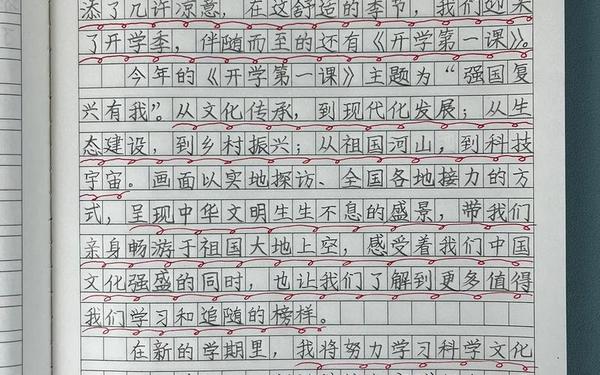 添了几许凉意，在这舒适的季节，我们迎来
了开学季，伴随而至的还有《开学第一课》。
今年的《开学第一课》主题为“强国复
兴有我”。从文化传承，到现代化发展；从生
态建设，到乡村振兴；从祖国河山，到科技
宇宙。画面以实地探访、全国各地接力的方
式，呈现中华文明生生不息的盛景，带我们
亲身畅游于祖国大地上空，感受着我们中国
文化强盛的同时，也让我们了解到更多值得
我们学习和追随的榜样。
在新的学期里，我将努力学习科学文化